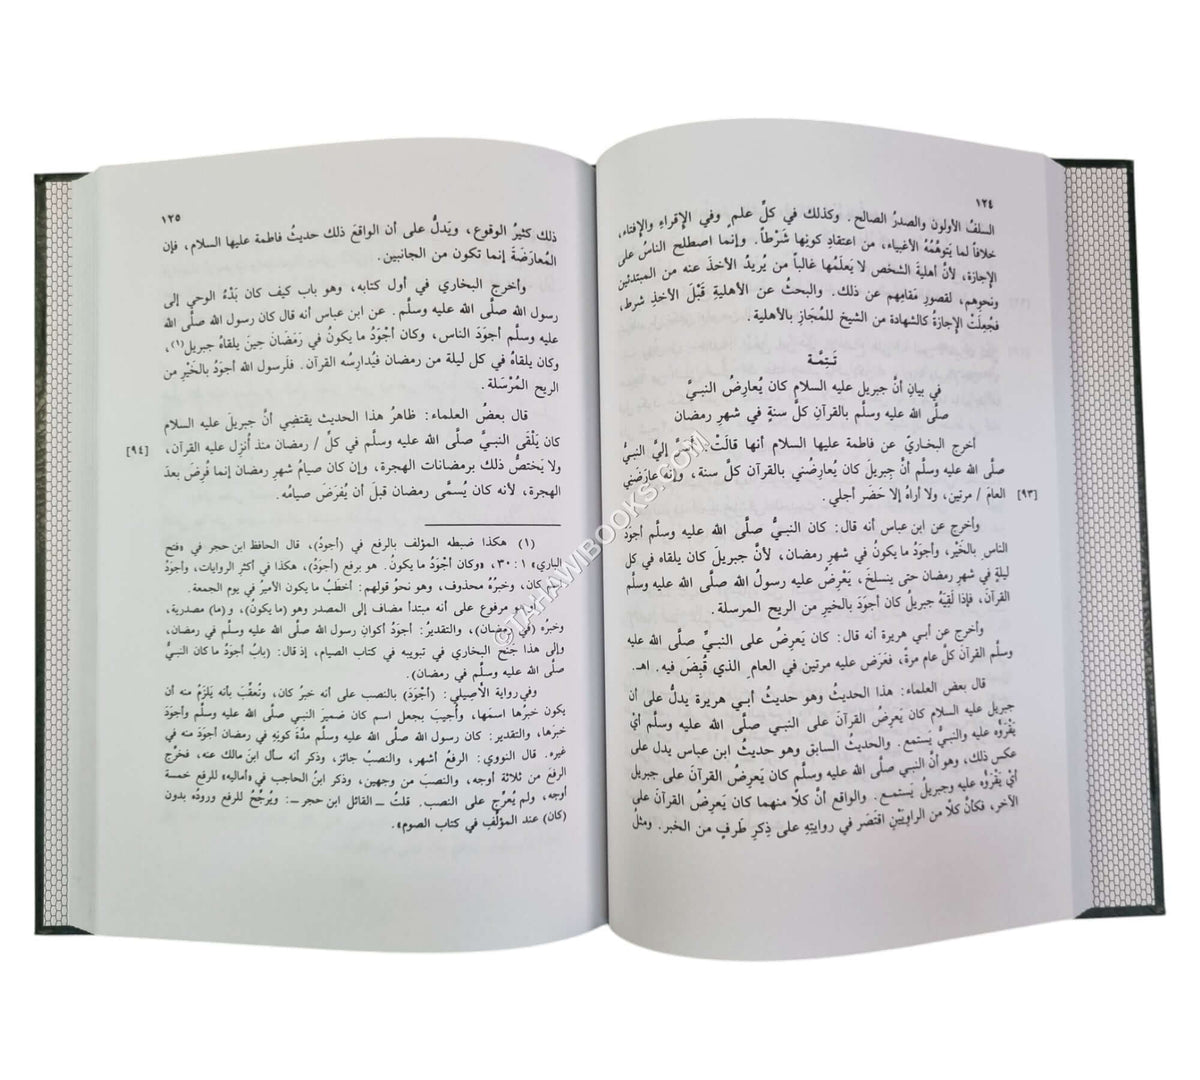 ١٢٤
السلفُ الأولون والصدرُ الصالح. وكذلك في كلِّ علمٍ وفي الإقراءِ والإفتاء،
خلافاً لما يَتوهَّمُهُ الأغبياء، من اعتقادِ كونِها شَرْطاً. وإنما اصطلح الناسُ على
الإجازة، لأنَّ أهليةَ الشخص لا يَعلَمُها غالباً من يُريدُ الأخذَ عنه من المبتدئين
ونحوِهم، لقصورِ مَقامِهم عن ذلك. والبحثُ عن الأهليةِ قَبْلَ الأخذِ شرط،
فجُعلَتْ الإجازةُ كالشهادة من الشيخ للمُجَازِ بالأهلية.
تَتِمَّة
في بيانِ أنَّ جبريل عليه السلام كان يُعارِضُ النبيَّ
صلَّى الله عليه وسلَّم بالقرآنِ كلَّ سنةٍ في شهرِ رمضان
أخرج البخاريّ عن فاطمة عليها السلام أنها قالَتْ: أسَرَّ إليَّ النبيُّ
صلَّى الله عليه وسلَّم أنَّ جِبريلَ كان يُعارِضُني بالقرآن كلَّ سنة، وإنَّه عارضَني
[٩٣] العامَ / مرتين، ولا أراهُ إلا حَضَر أجلي.
وأخرج عن ابن عباس أنه قال: كان النبيُّ صلَّى الله عليه وسلَّم أجوَدَ
الناس بالخَيْر، وأجوَدُ ما يكونُ في شهرِ رمضان، لأنَّ جبريلَ كان يلقاه في كل
ليلةٍ في شهرِ رمضان حتى ينسلخَ، يَعْرِضُ عليه رسولُ الله صلَّى الله عليه وسلَّم
القرآن، فإذا لَقِيَهُ جبريلُ كان أجوَدَ بالخيرِ من الريح المرسلة.
وأخرج عن أبي هريرة أنه قال: كان يَعرِضُ على النبيِّ صلَّى الله عليه
وسلَّم القرآنَ كلَّ عام مرةً، فعَرَض عليه مرتين في العامِ الذي قُبِضَ فيه. اهـ.
قال بعض العلماء: هذا الحديثُ وهو حديثُ أبي هريرة يدلُّ على أن
جبريل عليه السلام كان يَعرِضُ القرآنَ على النبي صلَّى الله عليه وسلَّم أيْ
يَقْرَؤُه عليه والنبيُّ يَستمع. والحديثُ السابق وهو حديثُ ابن عباس يدل على
عكسِ ذلك، وهو أنَّ النبي صلَّى الله عليه وسلَّم كان يَعرِضُ القرآنَ على جبريل
أيْ يَقْرَؤُه عليه وجبريلُ يَستمع. والواقع أنَّ كلًا منهما كان يَعرِضُ القرآنَ على
الآخر، فكأنَّ كلًا من الراوِيَيْنِ اقتَصَر في روايتِهِ على ذِكرِ طَرفٍ من الخبر. ومثلُ
١٢٥
ذلك كثيرُ الوقوع، ويَدلُّ على أن الواقعَ ذلك حديثُ فاطمة عليها السلام، فإن
المُعارَضَةَ إنما تكون من الجانبين.
وأخرج البخاري في أول كتابه، وهو باب كيف كان بَدْءُ الوحي إلى
رسول الله صلَّى الله عليه وسلَّم. عن ابن عباس أنه قال كان رسول الله صلَّى الله
عليه وسلَّم أجوَدَ الناس، وكان أجْوَدُ ما يكونُ في رَمَضَان حِينَ يلقاهُ جبريل(١)،
وكان يلقاهُ في كل ليلة من رمضان فيُدارِسُه القرآن. فلَرسول الله أجوَدُ بالخَيْرِ من
الريح المُرْسَلة.
قال بعضُ العلماء: ظاهرُ هذا الحديث يقتضي أنَّ جبريلَ عليه السلام
كان يَلْقَى النبيَّ صلَّى الله عليه وسلَّم في كلِّ / رمضان منذ أُنزِل عليه القرآن، [٩٤]
ولا يَختصُّ ذلك برمضانات الهجرة، وإن كان صيامُ شهرِ رمضان إنما فُرِضَ بعدَ
الهجرة، لأنه كان يُسمَّى رمضان قبلَ أن يُفرَضَ صيامُه.
(١) هكذا ضبطه المؤلف بالرفع في (أجودُ)، قال الحافظ ابن حجر في «فتح
الباري» ١ : ٣٠، «وكان أجْوَدُ ما يكون. هو برفعِ (أجوَدُ)، هكذا في أكثر الروايات، وأجودُ
كان، وخبرُهُ محذوف، وهو نحوُ قولهم: أخطَبُ ما يكونُ الأميرُ في يوم الجمعة.
هو مرفوع على أنه مبتدأ مضاف إلى المصدر وهو (ما يكونُ)، و(ما) مصدرية،
وخبرُه (في رمضان)، والتقديرُ: أجوَدُ أكوانِ رسول الله صلَّى الله عليه وسلَّم في رمضان،
وإلى هذا جَنَح البخاري في تبويبه في كتاب الصيام، إذ قال: (بابُ أجوَدُ ما كان النبيُّ
صلَّى الله عليه وسلَّم في رمضان).
وفي رواية الأَصِيلي: (أجوَدَ) بالنصب على أنه خبرُ كان، وتُعقِّبَ بأنه يَلزَمُ منه أن
يكون خبرُها اسمَها، وأجيبَ بجعل اسم كان ضميرَ النبي صلَّى الله عليه وسلَّم وأجودَ
خبرَها، والتقدير: كان رسول الله صلَّى الله عليه وسلَّم مدَّةَ كونِهِ في رمضان أجوَدَ منه في
غيره. قال النووي: الرفعُ أشهر، والنصبُ جائز، وذكر أنه سأل ابنَ مالك عنه، فخرَّج
الرفعَ من ثلاثة أوجه، والنصبَ من وجهين، وذكر ابنُ الحاجب في «أماليه» للرفع خمسة
أوجه، ولم يُعرِّج على النصب. قلتُ ــ القائل ابن حجر ــ: ويُرجِّحُ للرفع ورودُه بدون
(كان) عند المؤلِّفِ في كتاب الصوم».
©TAHAWIBOOKS.COM